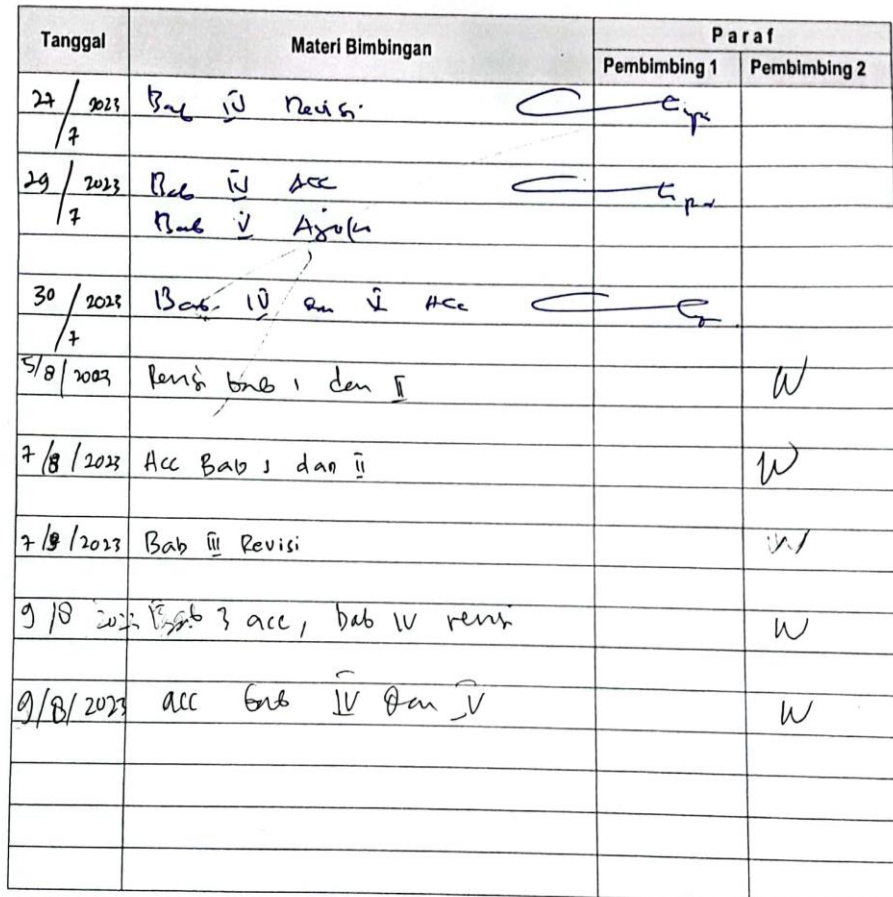 Tanggal Materi Bimbingan Paraf
Pembimbing 1 Pembimbing 2
27/7 2023 Bab IV Revisi
29/7 2023 Bab IV Acc
Bab V Ajukan
30/7 2023 Bab IV dan V Acc
5/8/2023 Revisi bab 1 dan II
7/8/2023 Acc Bab 1 dan II
7/8/2023 Bab III Revisi
9/8 Bab 3 acc, bab IV revisi
9/8/2023 acc bab IV dan V